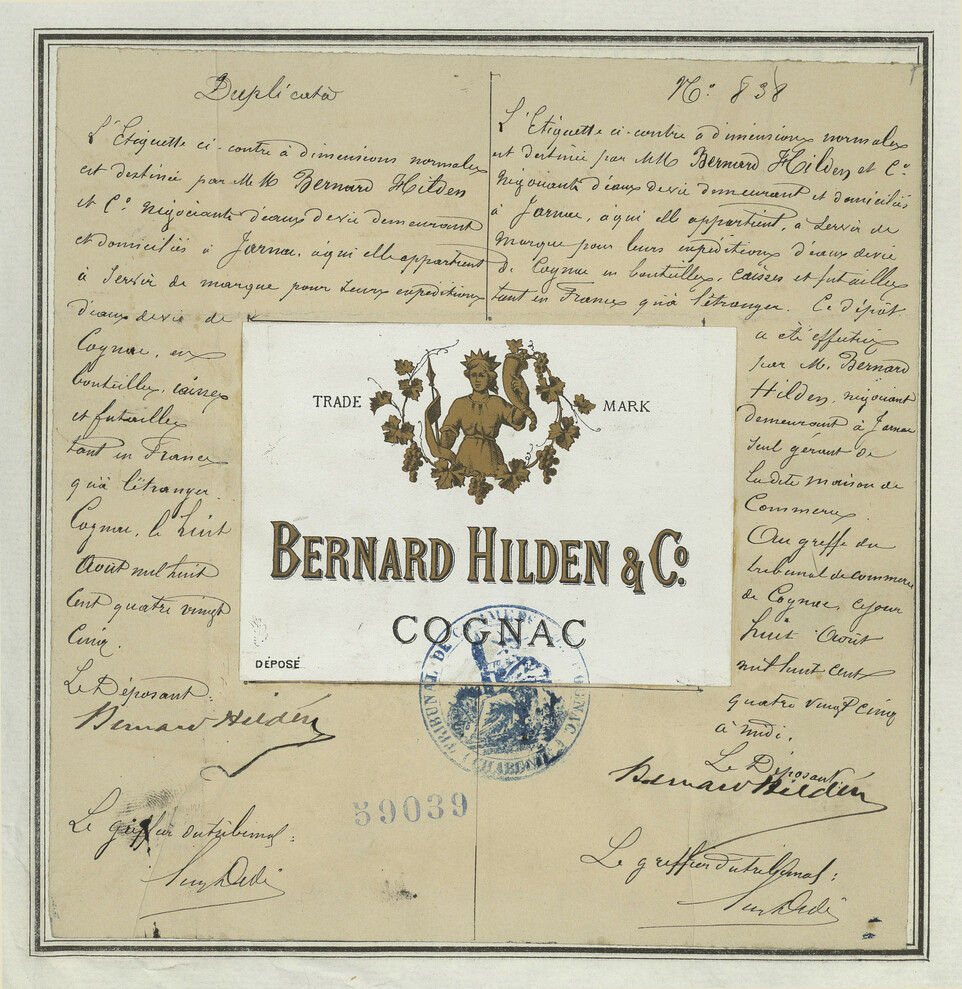 Duplicata
L'Etiquette ci-contre à dimensions normales
est destinée par MM Bernard Hilden
et Cº négociants d'eaux de vie demeurant
et domiciliés à Jarnac, à qui elle appartient
à servir de marque pour leurs expéditions
d'eaux de vie de
Cognac, en
bouteilles, caisses
et futailles
tant en France
qu'à l'étranger.
Cognac, le huit
Août mil huit
cent quatre vingt
cinq.
Le Déposant
Bernard Hilden
Le greffier du tribunal:
Nº 838
L'Etiquette ci-contre à dimensions normales
est destinée par MM Bernard Hilden et Cº
négociants d'eaux de vie demeurant et domiciliés
à Jarnac, à qui elle appartient, à servir de
marque pour leurs expéditions d'eaux de vie
de Cognac en bouteilles, caisses et futailles
tant en France qu'à l'étranger. Ce dépôt
a été effectué
par M. Bernard
Hilden, négociant
demeurant à Jarnac
seul gérant de
la dite maison de
Commerce.
Au greffe du
tribunal de commerce
de Cognac, ce jour
huit Août
mil huit cent
quatre vingt cinq
à midi.
Le Déposant
Bernard Hilden
Le greffier du tribunal:
TRADE MARK
BERNARD HILDEN & Cº
COGNAC
DÉPOSÉ
TRIBUNAL DE COMMERCE
COGNAC
(CHARENTE)
59039